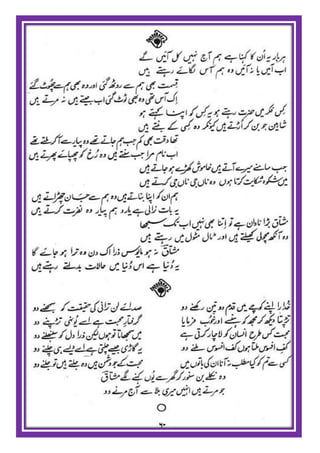 ہر بار یہ اُن کا کہنا ہے ہم آج نہیں کل آئیں گے
اب آئیں یا نہ آئیں وہ ہم آس لگائے رہتے ہیں
قسمت بھی ہم سے روٹھ گئی اور وہ بھی ہم سے چھوٹ گئے
اِک آس تھی وہ بھی ٹوٹ گئی اب جیتے ہیں نہ مرتے ہیں
کس فکر میں حضرت رہتے ہو یہ کس کو اپنا کہتے ہو
شاہین جو بن کر اُڑتے ہیں کیونکر وہ کسی کے بنتے ہیں
تھا وقت بھی کم جب ہم جاتے تھے وہ پیار سے آ کر ملتے تھے
اب نام مرا جب سنتے ہیں وہ رُخ کو چھپائے پھرتے ہیں
جب سامنے میرے آتے ہیں خاموش کھڑے ہو جاتے ہیں
میں شکوہ شکایت کرتا ہوں وہ ہاں جی ہاں جی کرتے ہیں
ہم اُن کو اپنا بناتے ہیں وہ ہم سے جان چھڑاتے ہیں
یہ بات نرالی ہے یارو ہم پیار وہ نفرت کرتے ہیں
مشتاق بڑا نادان ہے تو اِتنا بھی نہیں اب تک سمجھا
وہ آنکھ مچولی کھیلتے ہیں اور ٹال مٹول میں رہتے ہیں
مشتاق نہ ہو مایوس ذرا اک دن وہ ترا ہو جائے گا
یہ دُنیا ہے اس دُنیا میں حالات بدلتے رہتے ہیں
خدارا اپنے کوچے میں قدم دو تین رکھنے دو
صدائے لن ترانی کی حقیقت کو سمجھنے دو
تڑپتا دیکھ کر مجھ کو ہنسے اور خوب فرمایا
گرفتارِ محبت ہے اسے یُونہی تڑپنے دو
محبت کس طرح انسان کو لاچار کرتی ہے
میں سمجھاتا ہوں لیکن ذرا دل کو سنبھلنے دو
کفِ افسوس ملتا ہوں کفِ افسوس ملنے دو
یہ گاڑی جیسے چلتی ہے اسے ایسے ہی چلنے دو
کسی سے تم کو کیا مطلب نہ آنا ان کی باتوں میں
محبت کے جو دشمن ہیں وہ جلتے ہیں تو جلنے دو
وہ نکلے بن سنور کر گھر سے یُوں کہنے لگے مشتاق
جو مرتے ہیں انہیں میری بلا سے آج مرنے دو
۶۰